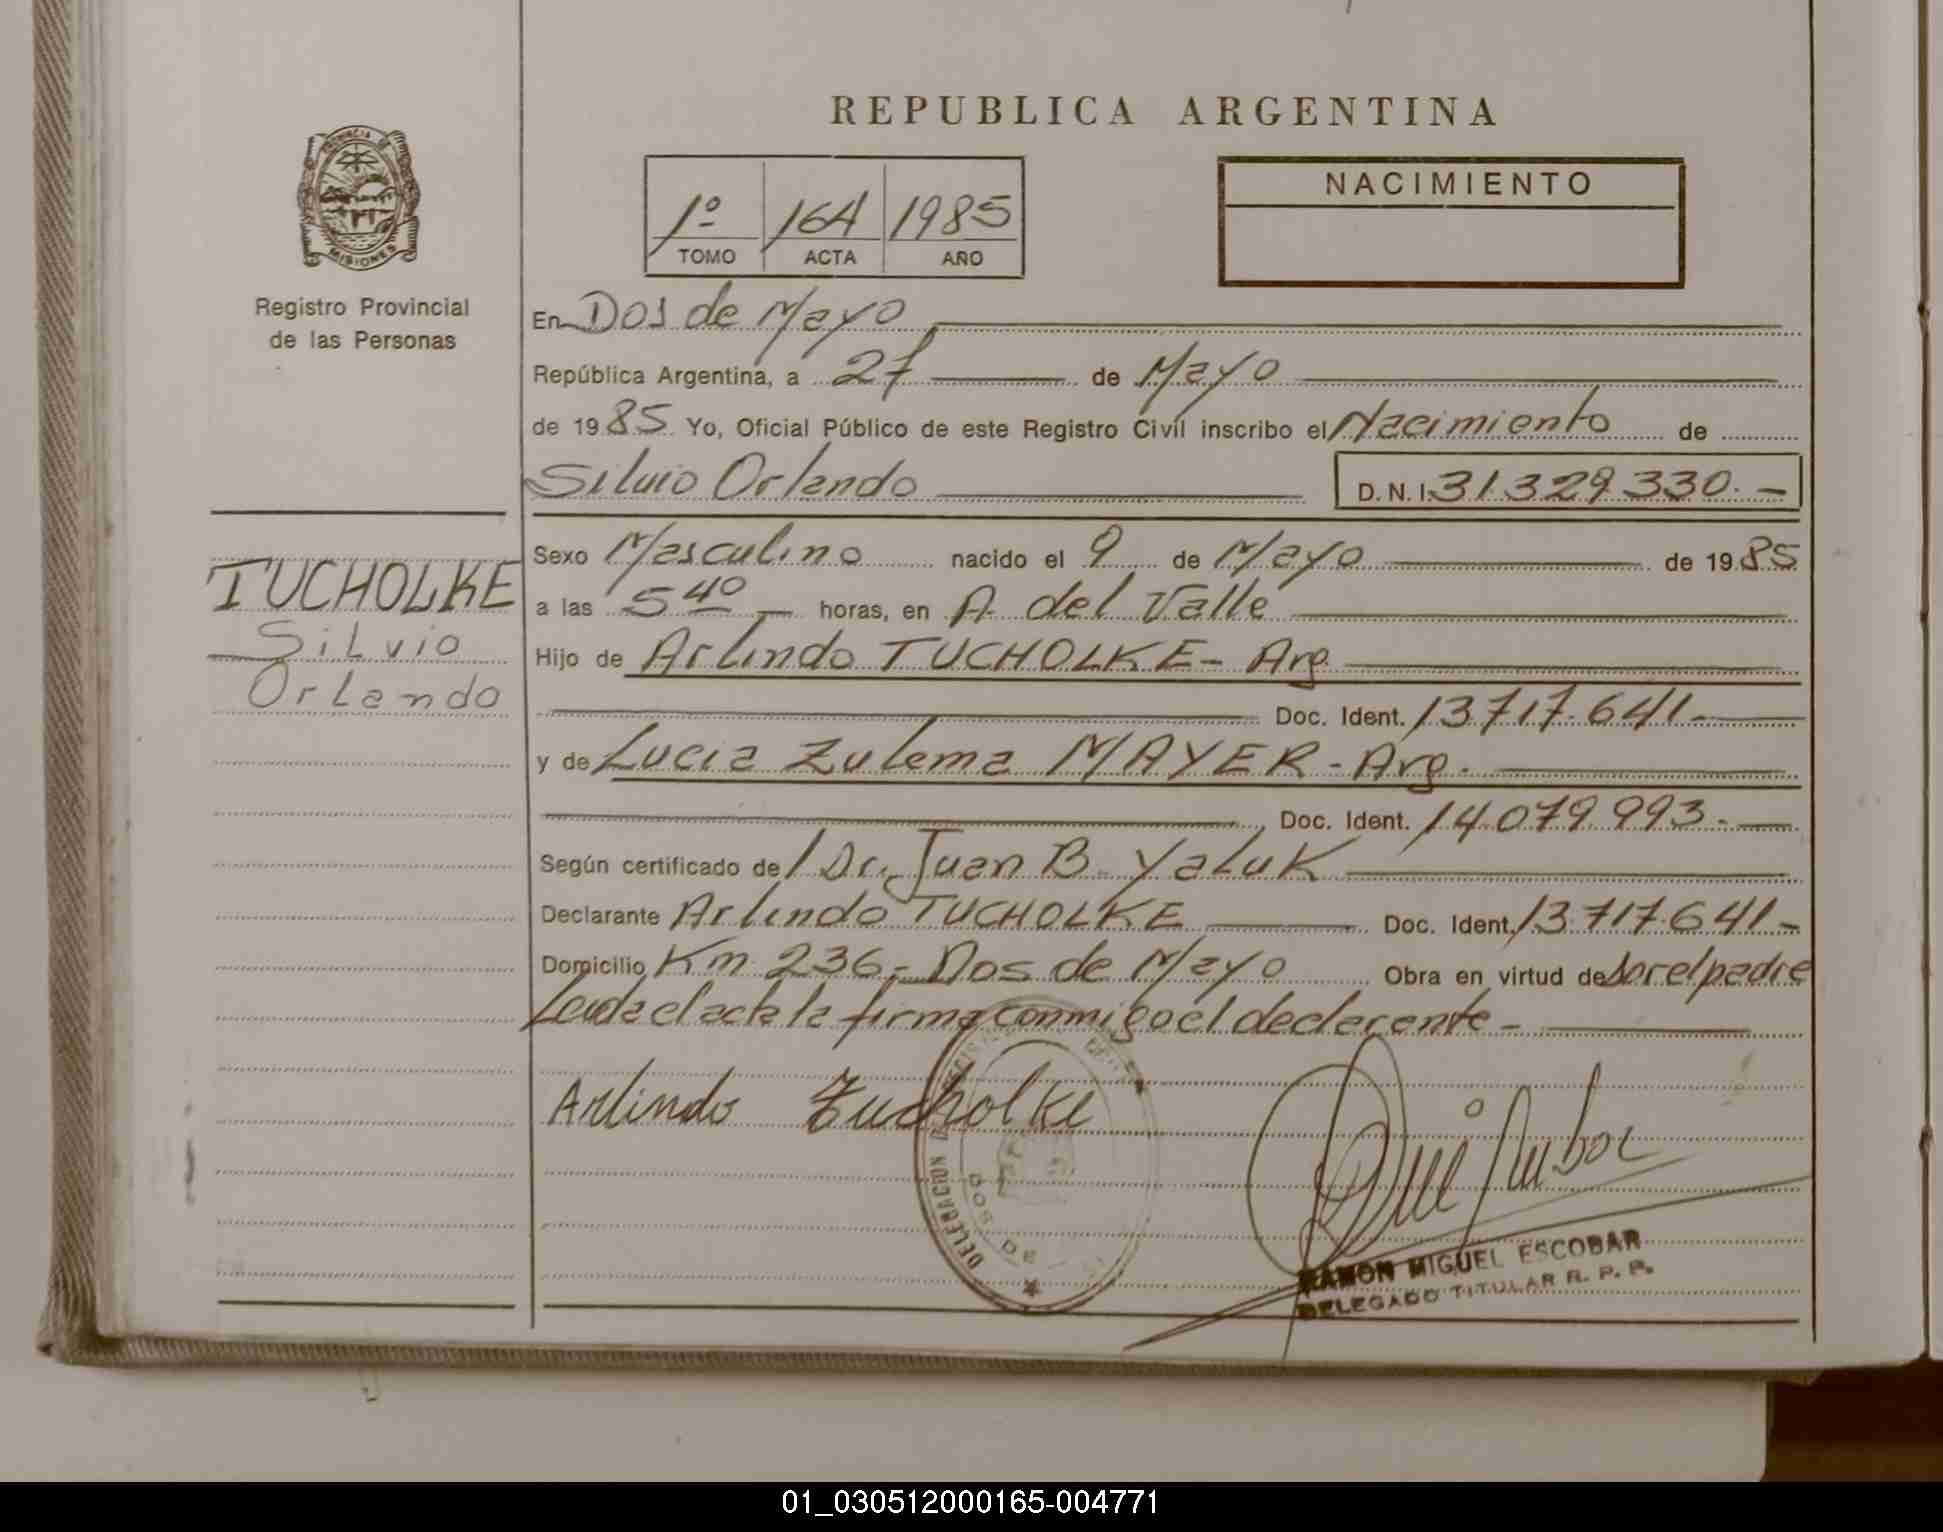 REPUBLICA ARGENTINA
PROVINCIA DE
MISIONES
Registro Provincial
de las Personas
1º 164 1985
TOMO ACTA AÑO
NACIMIENTO
En Dos de Mayo
República Argentina, a 27 de Mayo
de 1985 Yo, Oficial Público de este Registro Civil inscribo el Nacimiento de
Silvio Orlando D. N. I. 31.329.330.-
TUCHOLKE
Silvio
Orlando
Sexo Masculino nacido el 9 de Mayo de 1985
a las 5 40 horas, en A. del Valle
Hijo de Arlindo TUCHOLKE - Arg.
Doc. Ident. 13.717.641.-
y de Lucia Zulema MAYER - Arg.
Doc. Ident. 14.079.993.-
Según certificado de l Dr. Juan B. Yaluk
Declarante Arlindo TUCHOLKE Doc. Ident. 13.717.641-
Domicilio Km 236 - Dos de Mayo Obra en virtud de ser el padre
Leida el acta la firma conmigo el declarante -
Arlindo Tucholke
DELEGACION
RAMON MIGUEL ESCOBAR
DELEGADO TITULAR R. P. P.
01_030512000165-004771